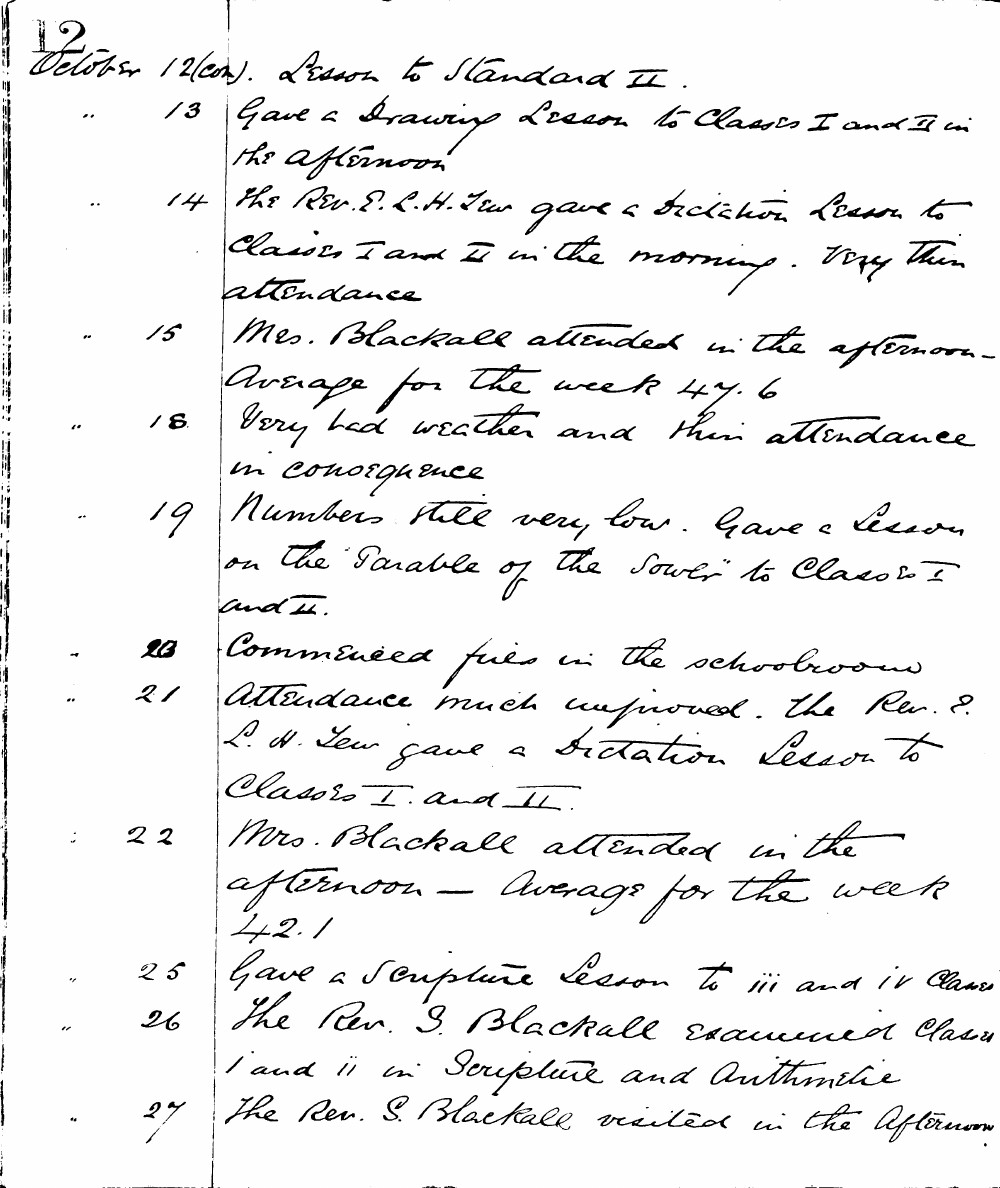 12
October 12 (con). Lesson to Standard II.
" 13 Gave a Drawing Lesson to Classes I and II in
the afternoon
" 14 The Rev. E. L. H. Tew gave a Dictation Lesson to
Classes I and II in the morning. Very thin
attendance
" 15 Mrs. Blackall attended in the afternoon –
Average for the week 47.6
" 18 Very bad weather and thin attendance
in consequence
" 19 Numbers still very low. Gave a Lesson
on the "Parable of the Sower" to Classes I
and II.
" 20 Commenced fires in the schoolroom
" 21 Attendance much improved. The Rev. E.
L. H. Tew gave a Dictation Lesson to
Classes I. and II.
" 22 Mrs. Blackall attended in the
afternoon – Average for the week
42.1
" 25 Gave a Scripture Lesson to iii and iv Classes
" 26 The Rev. S. Blackall examined Classes
i and ii in Scripture and Arithmetic
" 27 The Rev. S. Blackall visited in the Afternoon.